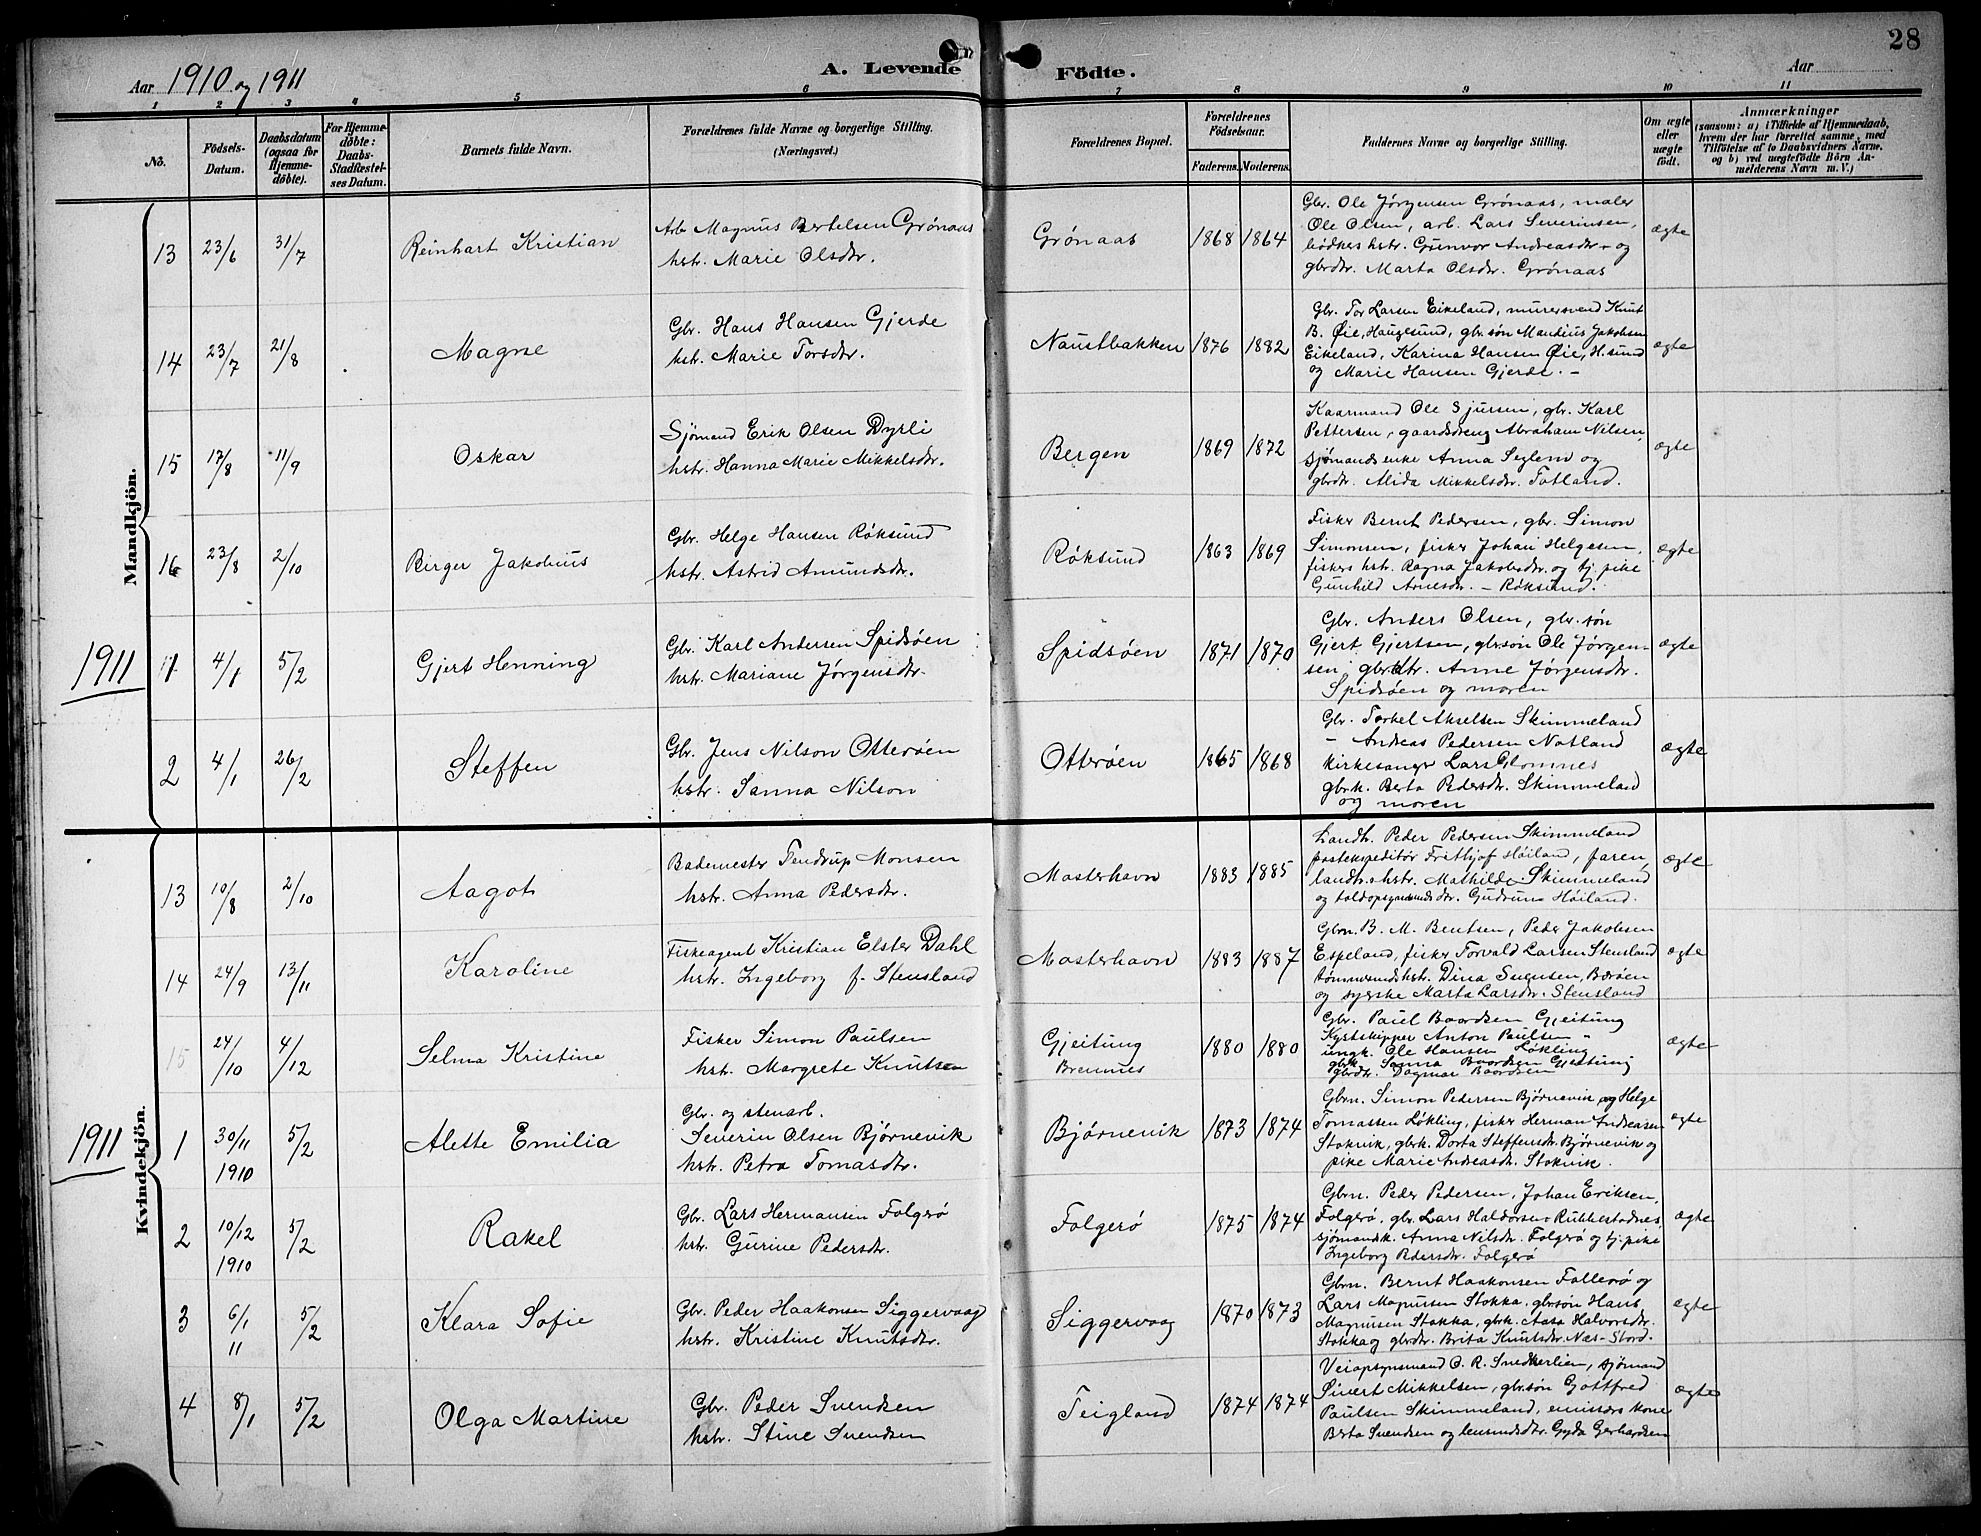 28
Aar 1910 og 1911
A. Levende Födte.
Aar
1 2 3 4 5 6 7 8 9 10 11
No.
Födsels-Datum.
Daabsdatum (ogsaa for Hjemme-døbte).
For Hjemme-døbte: Daabs-Stadfæstel-ses Datum.
Barnets fulde Navn.
Forældrenes fulde Navne og borgerlige Stilling. (Næringsvei.)
Forældrenes Bopæl.
Forældrenes Födselsaar.
Faderens. Moderens.
Faddernes Navne og borgerlige Stilling.
Om ægte eller uægte født.
Anmærkninger
(saasom: a) i Tilfælde af Hjemmedaab,
hvem der har forrettet samme, med
Tilföielse af to Daabsvidners Navne,
og b) ved uægtefödte Börn An-
melderens Navn m. V.)
Mandkjön.
13 23/6 31/7 Reinhart Kristian
Arb. Magnus Bertelsen Grønaas
hstr. Marie Olsdtr.
Grønaas 1868 1864
Gbr. Ole Jørgensen Grønaas, maler
Ole Olsen, arb. Lars Severinsen,
bødkers hstr. Gunvor Andreasdtr. og
gbrdtr. Marta Olsdtr. Grønaas
ægte
14 23/7 21/8 Magne
Gbr. Hans Hansen Gjerde
hstr. Marie Torsdtr.
Naustbakken 1876 1882
Gbr. Tor Larsen Eikeland, murersvend Knut
B. Øie, Haugesund, gbr.søn Mandius Jakobsen
Eikeland, Karina Hansen Øie, H.sund
og Marie Hansen Gjerde. -
ægte
15 17/8 11/9 Oskar
Sjømand Erik Olsen Dyrli
hstr. Hanna Marie Mikkelsdtr.
Bergen 1869 1872
Kaarmand Ole Sjursen, gbr. Karl
Pettersen, gaardsdreng Abraham Nilsen,
sjømandsenke Anna Seglem og
gbrdtr. Alida Mikkelsdtr. Totland.
ægte
16 23/8 2/10 Birger Jakobius
Gbr. Helge Hansen Røksund
hstr. Astrid Amundsdtr.
Røksund 1863 1869
Fisker Bernt Pedersen, gbr. Simon
Simonsen, fisker Johan Helgesen,
fiskers hstr. Ragna Jakobsdtr. og tj. pike
Gunhild Arnesdtr. - Røksund.
ægte
1911
1 4/1 5/2 Gjert Henning
Gbr. Karl Andersen Spidsøen
hstr. Mariane Jørgensdtr.
Spidsøen 1871 1870
Gbr. Anders Olsen, gbr. søn
Gjert Gjertsen, gbr.søn Ole Jørgen-
sen, gbr.dtr. Anne Jørgensdtr.
Spidsøen og moren
ægte
2 4/1 26/2 Steffen
Gbr. Jens Nilson Otterøen
hstr. Sanna Nilson
Otterøen 1865 1868
Gbr. Torkel Akselsen Skimmeland
- Andreas Pedersen Notland
kirkesanger Lars Glomnes
gbrk. Berta Pedersdtr. Skimmeland
og moren
ægte
Kvindekjön.
13 10/8 2/10 Aagot
Bademester Tendrup Monsen
hstr. Anna Pedersdtr.
Mosterhavn 1883 1885
Landh. Peder Pedersen Skimmeland
postekspeditør Frithjof Høiland, faren,
landh.s hstr. Mathilde Skimmeland
og toldopsynsmdsdtr. Gudrun Høiland.
ægte
14 24/9 13/11 Karoline
Fiskeagent Kristian Elster Dahl
hstr. Ingeborg f. Stensland
Mosterhavn 1883 1887
Gbrn. B. M. Bentsen, Peder Jakobsen
Espeland, fisker Torvald Larsen Stensland
tømmermdshstr. Dina Svensen, Bærøen
og syerske Marta Larsdtr. Stensland
ægte
15 24/10 4/12 Selma Kristine
Fisker Simon Paulsen
hstr. Margrete Knutsen
Gjeitung
Bremnes 1880 1880
Gbr. Paul Baardsen Gjeitung
Kystskipper Anton Paulsen -
ungk. Ole Hansen Løkling
gbrk. Sanna Baardsen Gjeitung
gbrdtr. Dagmar Baardsen
ægte
1911
1 30/11 1910 5/2 Alette Emilia
Gbr. og stenarb.
Severin Olsen Bjørnevik
hstr. Petra Tomasdtr.
Bjørnevik 1873 1874
Gbrn. Simon Pedersen Bjørnevik og Helge
Tomassen Løkling, fisker Herman Andreassen
Stokvik, gbrk. Dorta Steffensdtr. Bjørnevik og
pike Marie Andreasdtr. Stokvik.
ægte
2 10/12 1910 5/2 Rakel
Gbr. Lars Hermansen Folgerø
hstr. Gurine Pedersdtr.
Folgerø 1875 1874
Gbrn. Peder Pedersen, Johan Eriksen,
Folgerø, gbr. Lars Haldorsen Rubbestadnes,
sjømandsk. Anna Nilsdtr. Folgerø og tj. pike
Ingeborg Pedersdtr. Folgerø
ægte
3 6/1 11 5/2 Klara Sofie
Gbr. Peder Haakonsen Siggervaag
hstr. Kristine Knutsdtr.
Siggervaag 1870 1873
Gbrn. Bernt Haakonsen Follerø og
Lars Magnusen Stokka, gbrsøn Hans
Magnusen Stokka, gbrk. Aasa Halvorsdtr.
Stokka og gbrdtr. Brita Knutsdtr. Næs - Stord.
ægte
4 8/1 5/2 Olga Martine
Gbr. Peder Svendsen
hstr. Stine Svendsen
Teigland 1874 1874
Veiopsynsmand O. R. Snedkerlien, sjømand
Sivert Mikkelsen, gbr.søn Gottfred
Paulsen Skimmeland, emissærs kone
Berta Svendsen og lensmdsdtr. Gyda Gerhardsen
ægte